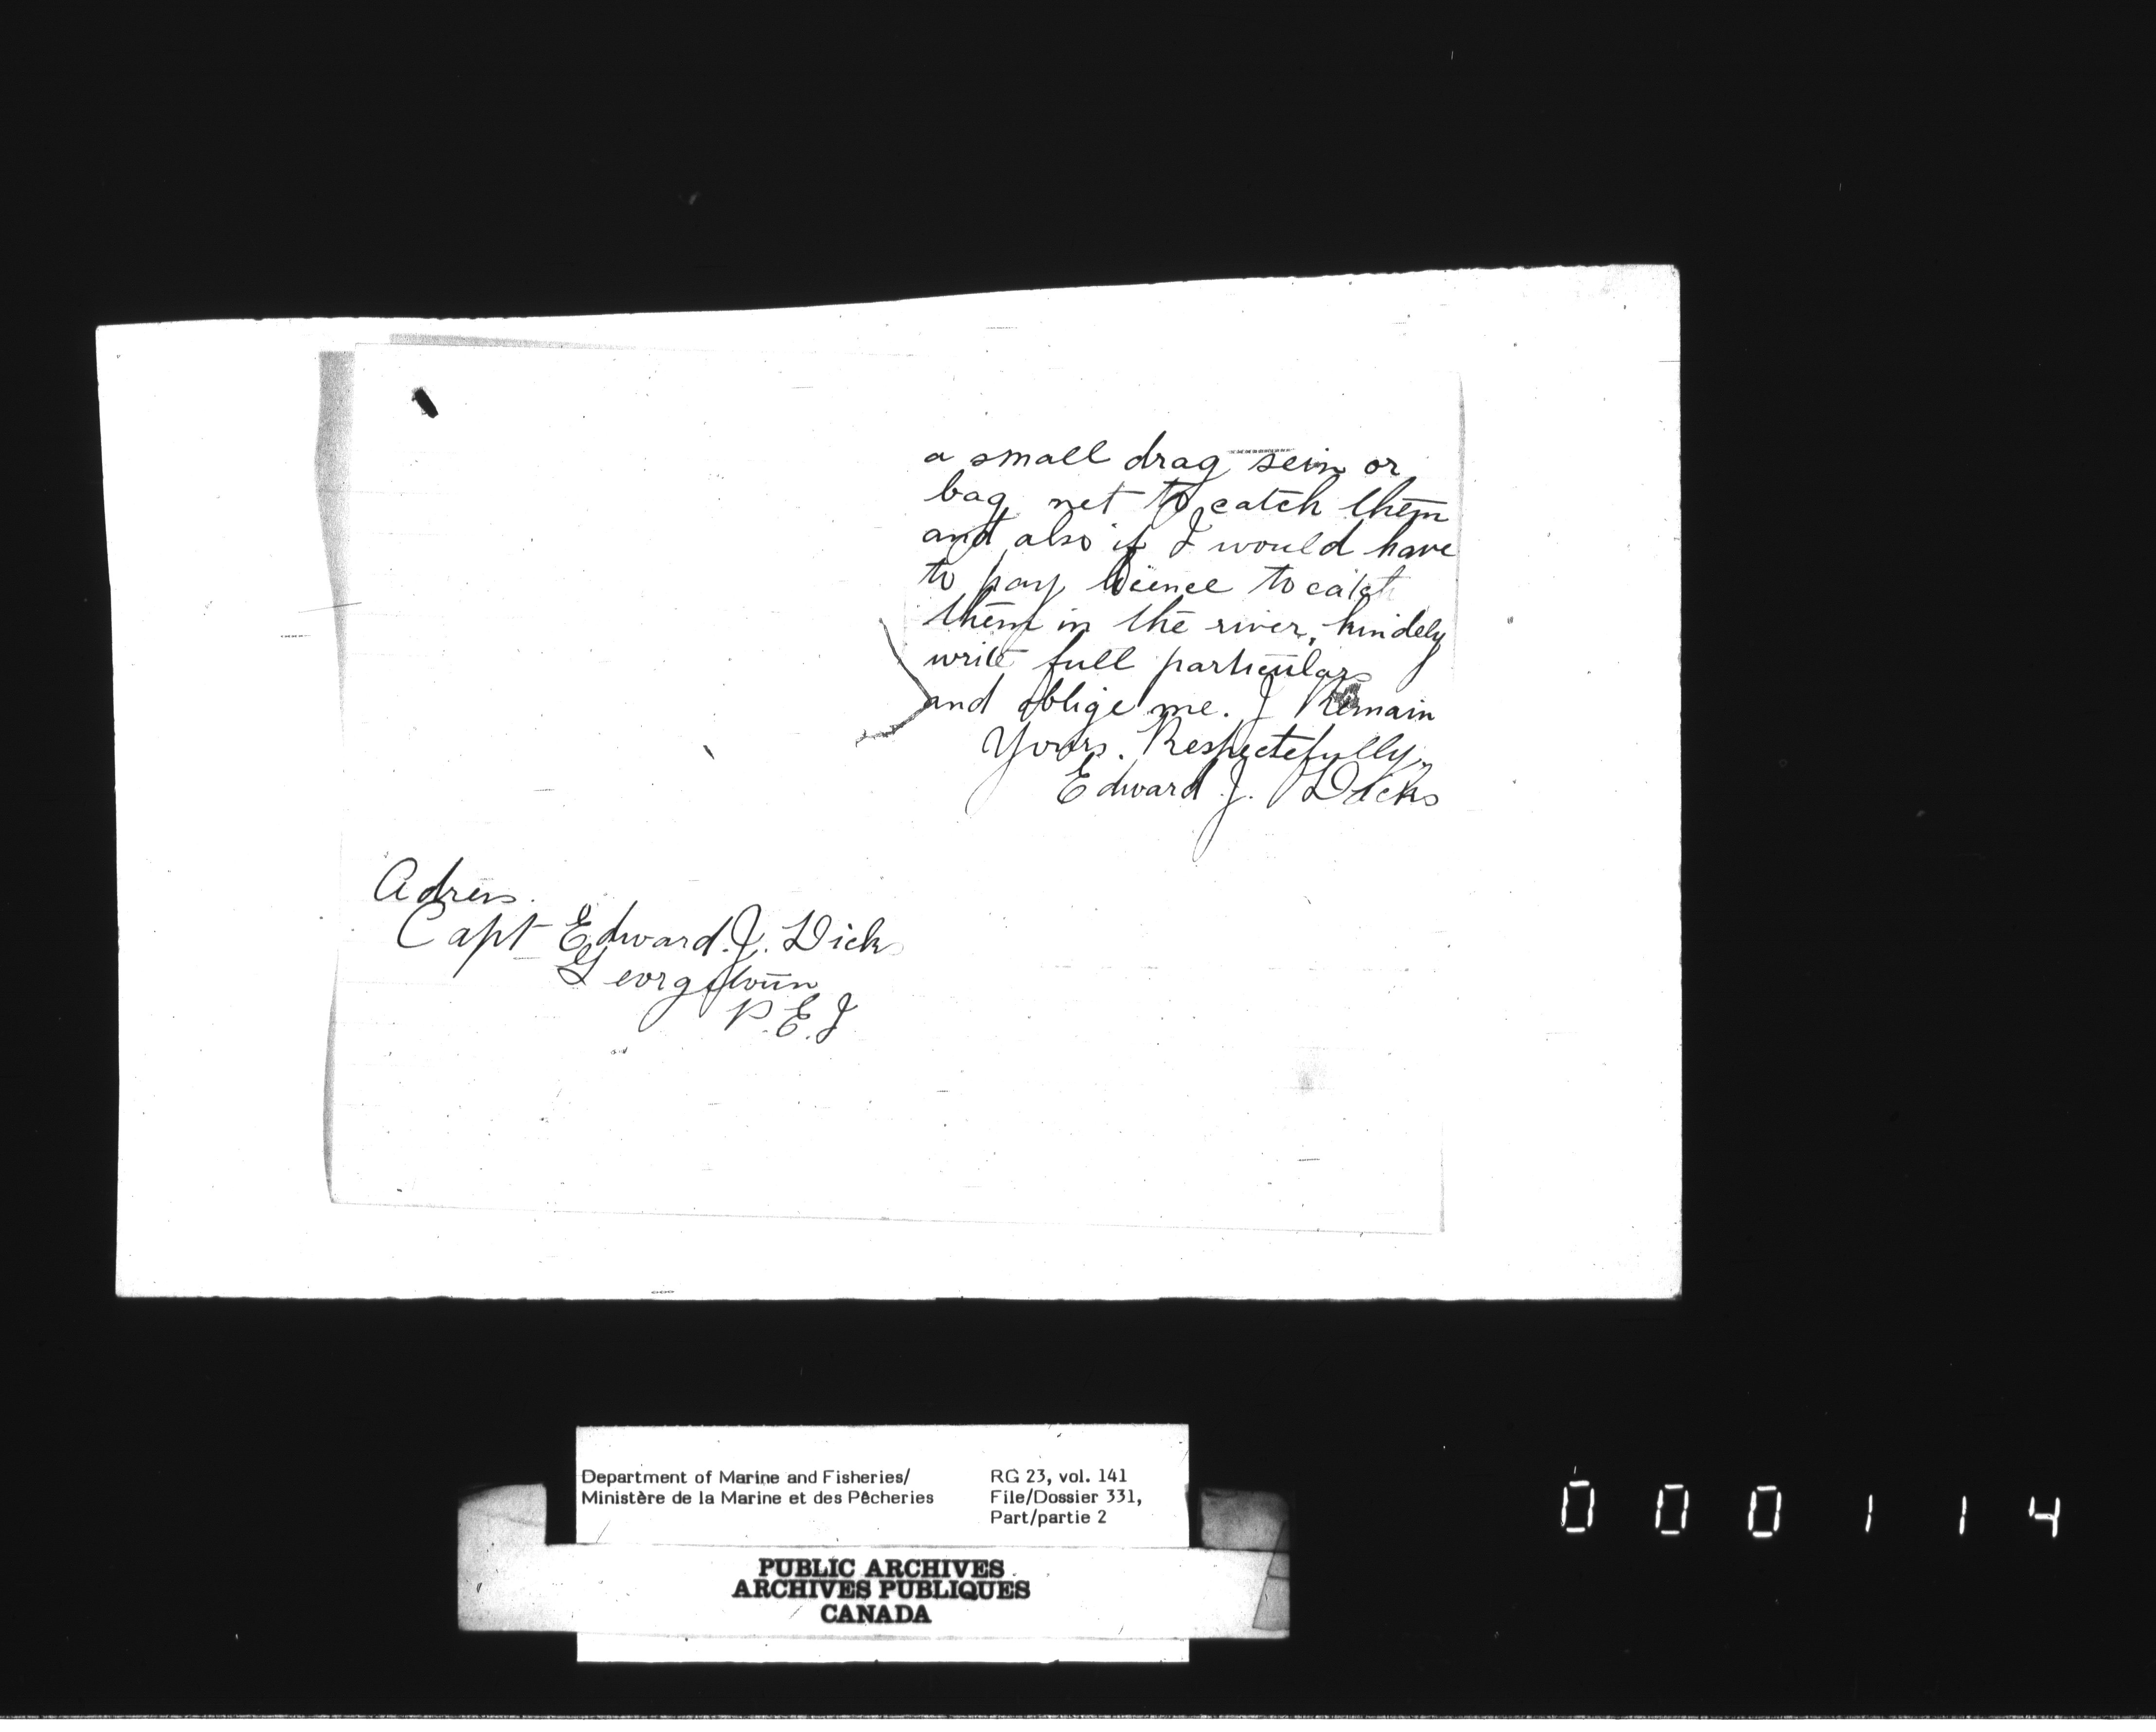 a small drag sein or
bag net to catch them
and also if I would have
to pay licence to catch
them in the river, kindely
write full particulars
and oblige me. I Remain
Yours. Respectefully,
Edward J. Dicks
Adress.
Capt Edward. J. Dicks
Georgetown
P.E.I
Department of Marine and Fisheries/
Ministère de la Marine et des Pêcheries
RG 23, vol. 141
File/Dossier 331,
Part/partie 2
PUBLIC ARCHIVES
ARCHIVES PUBLIQUES
CANADA
000114